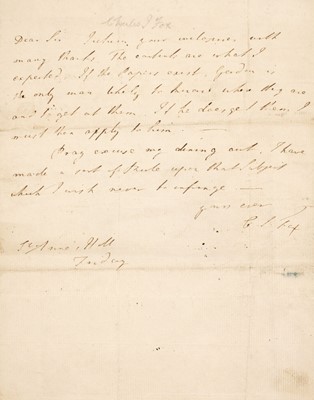 Charles J Fox
Dear Sir I return your with
many thanks The contents are what I
expected. If the Papers exist, Gordon is
the only man likely to know where they are
and to get at them. If he does get them I
must then apply to him. —
Pray excuse my dining out, I have
made a sort of rule upon that subject
which I wish never to infringe —
yours ever
C. J. Fox
St Anne's Hill
Friday